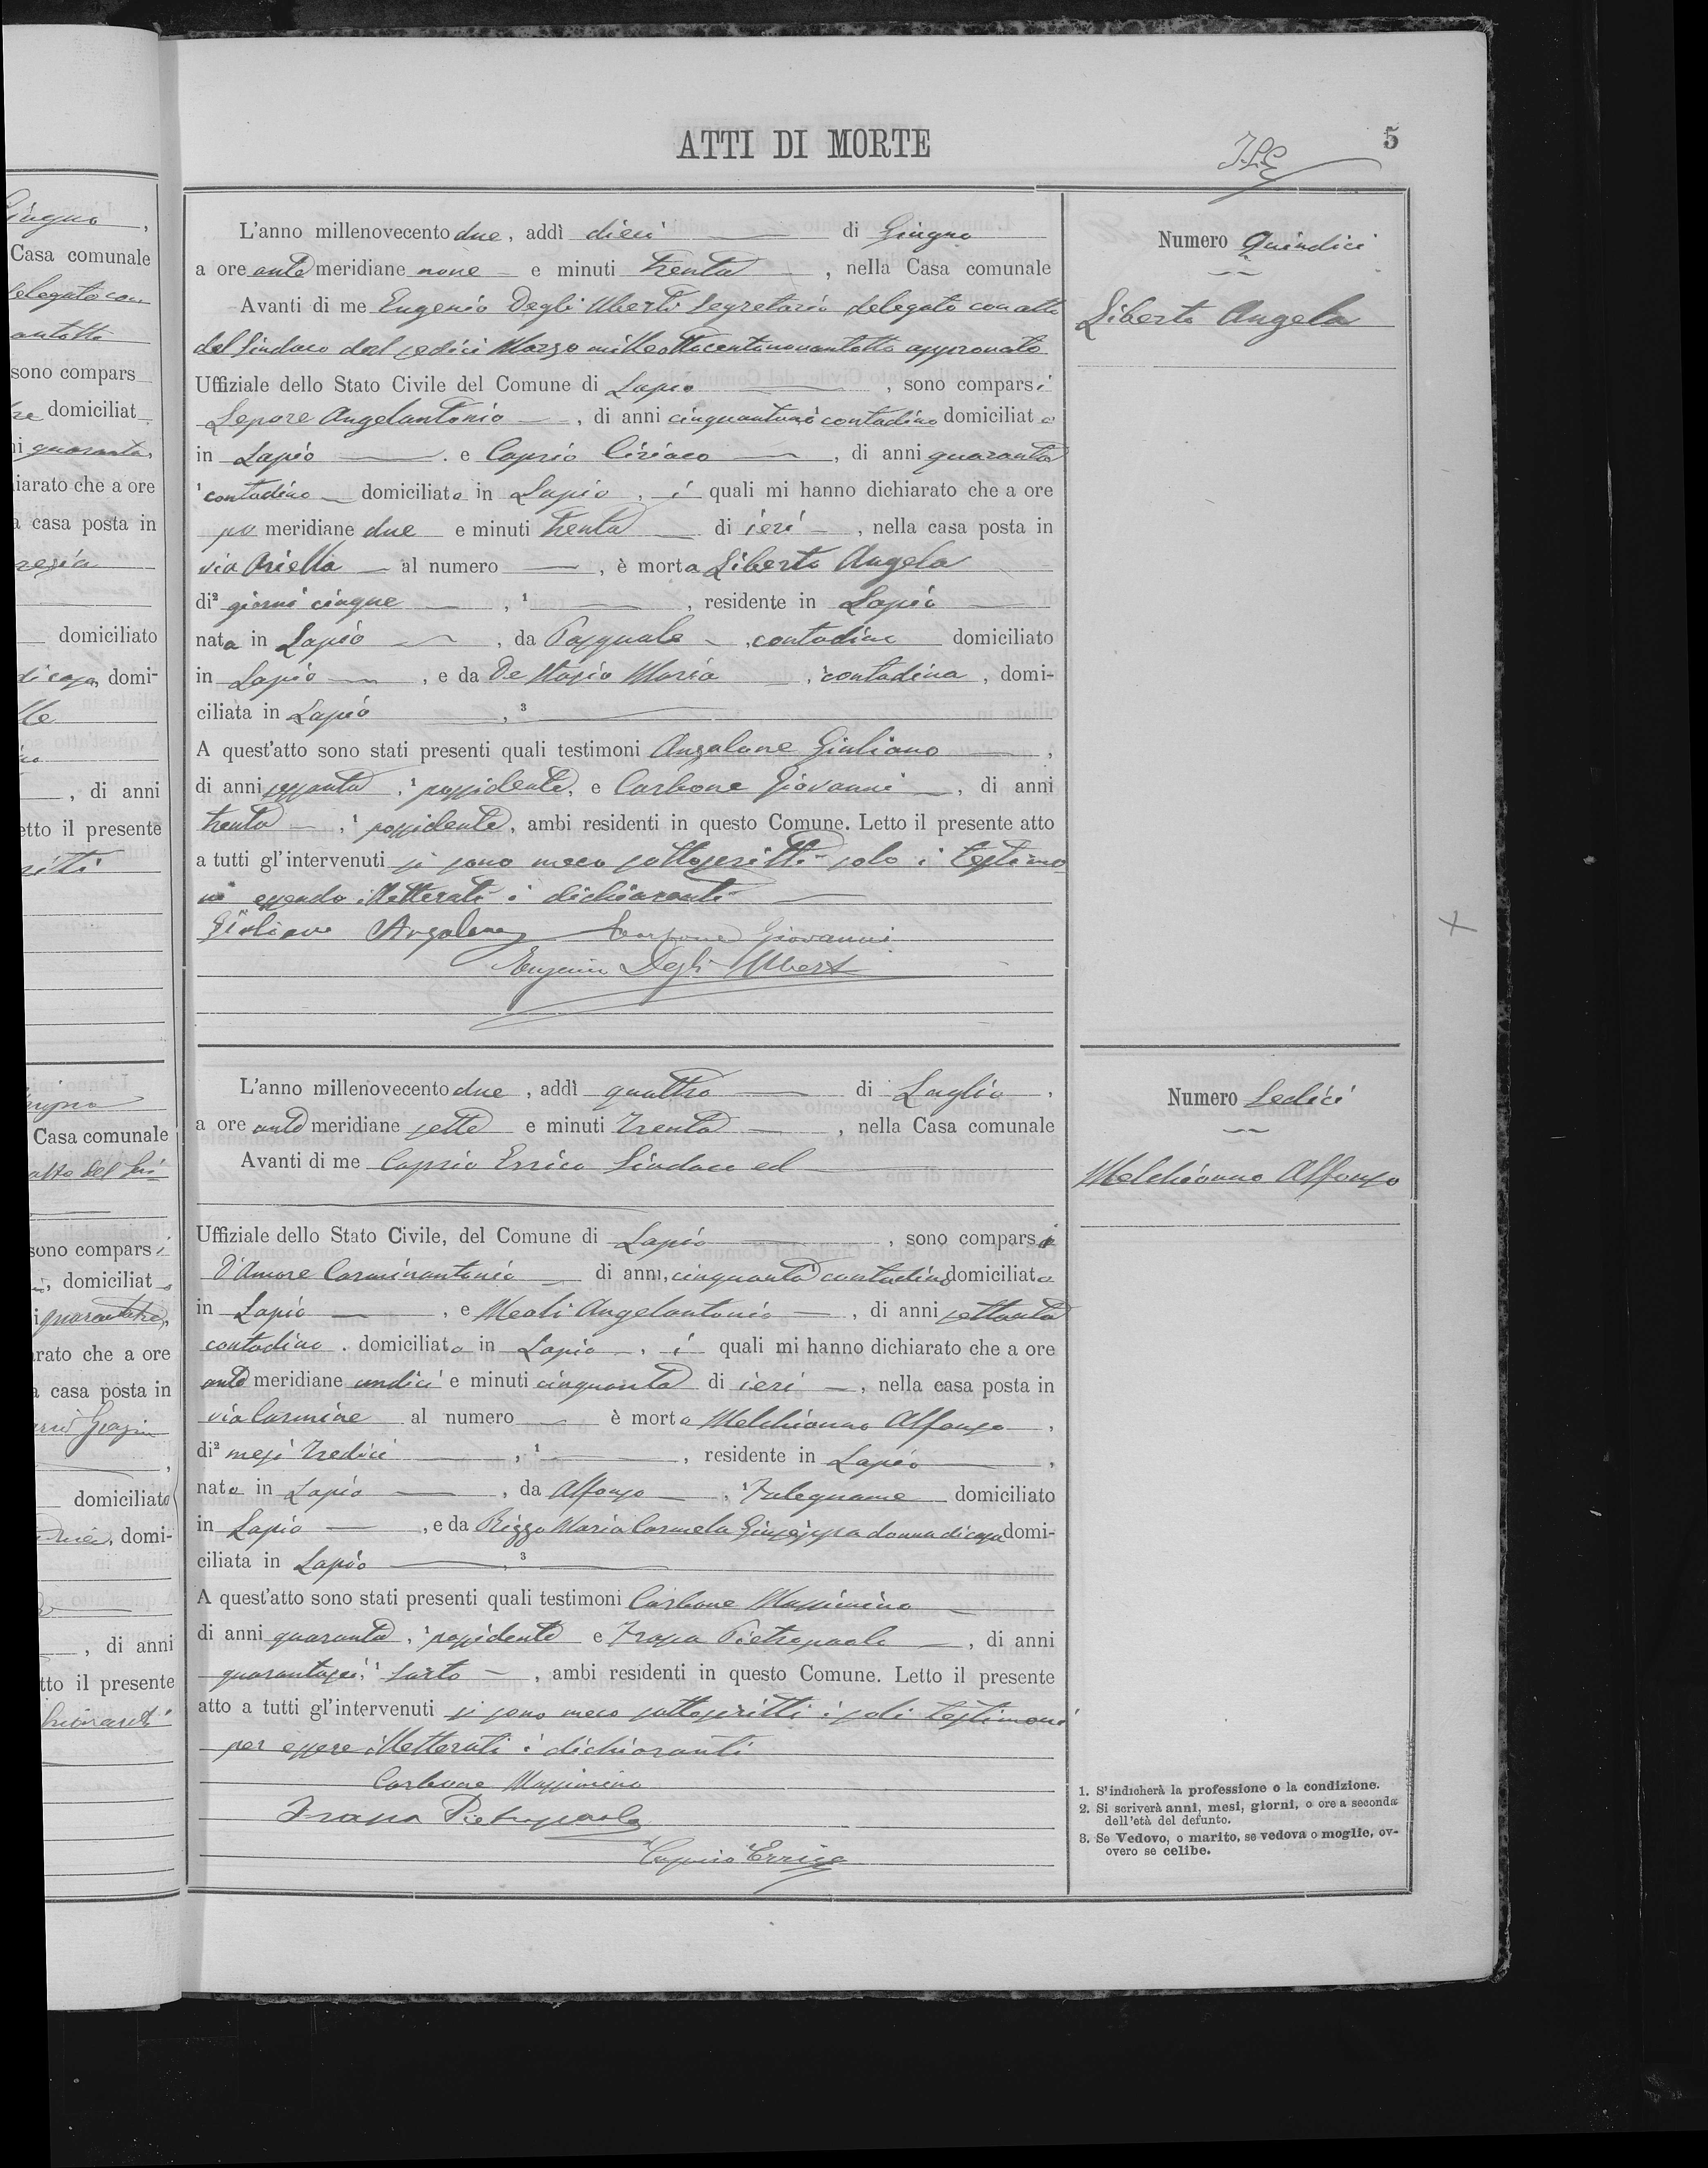 ATTI DI MORTE
5
L'anno millenovecento due, addì dieci di Giugno
a ore ante meridiane nove e minuti trenta, nella Casa comunale
Avanti di me Eugenio Degli Uberti Segretario delegato con atto
del Sindaco del sedici Marzo milleottocentonovantotto approvato
Uffiziale dello Stato Civile del Comune di Lapio, sono comparsi
Lepore Angelantonio, di anni cinquantuno contadino domiciliato
in Lapio e Caprio Ciriaco, di anni quaranta
1 contadino domiciliato in Lapio, i quali mi hanno dichiarato che a ore
po meridiane due e minuti trenta di ieri, nella casa posta in
via Ariella al numero, è morta Liberto Angela
di2 giorni cinque, 1, residente in Lapio
nata in Lapio, da Pasquale, contadino domiciliato
in Lapio, e da De Stasio Maria, 1 contadina, domi-
ciliata in Lapio, 3
A quest'atto sono stati presenti quali testimoni Anzalone Giuliano,
di anni sessanta, 1 possidente, e Carbone Giovanni, di anni
trenta, 1 possidente, ambi residenti in questo Comune. Letto il presente atto
a tutti gl'intervenuti si sono meco sottoscritti solo i testimo
ni essendo illetterati i dichiaranti
Giuliano Anzalone Carbone Giovanni
Eugenio Degli Uberti
Numero Quindici
Liberto Angela
L'anno millenovecento due, addì quattro di Luglio,
a ore ante meridiane sette e minuti trenta, nella Casa comunale
Avanti di me Caprio Errico Sindaco ed
Uffiziale dello Stato Civile, del Comune di Lapio, sono comparsi
D'Amore Carminantonio di anni, cinquanta 1 contadino domiciliato
in Lapio, e Meoli Angelantonio, di anni settanta
contadino. domiciliato in Lapio, i quali mi hanno dichiarato che a ore
ante meridiane undici e minuti cinquanta di ieri, nella casa posta in
via Carmine al numero è morto Melchionno Alfonso,
di2 mesi tredici, 1, residente in Lapio,
nato in Lapio, da Alfonso, 1 Falegname domiciliato
in Lapio, e da Rizzo Maria Carmela Giuseppa donna di casa domi-
ciliata in Lapio 3
A quest'atto sono stati presenti quali testimoni Carbone Massimino
di anni quaranta, 1 possidente e Trapa Pietropaolo, di anni
quarantasei, 1 sarto, ambi residenti in questo Comune. Letto il presente
atto a tutti gl'intervenuti si sono meco sottoscritti i soli testimoni
per essere illetterati i dichiaranti
Carbone Massimino
Trapa Pietropaolo
Caprio Errico
Numero Sedici
Melchionno Alfonso
1. S'indicherà la professione o la condizione.
2. Si scriverà anni, mesi, giorni, o ore a seconda
dell'età del defunto.
3. Se Vedovo, o marito, se vedova o moglie, ov-
overo se celibe.